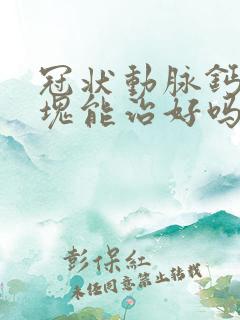 冠状動脉鈣
塊能治好吗
彭保紅
未经同意禁止转载